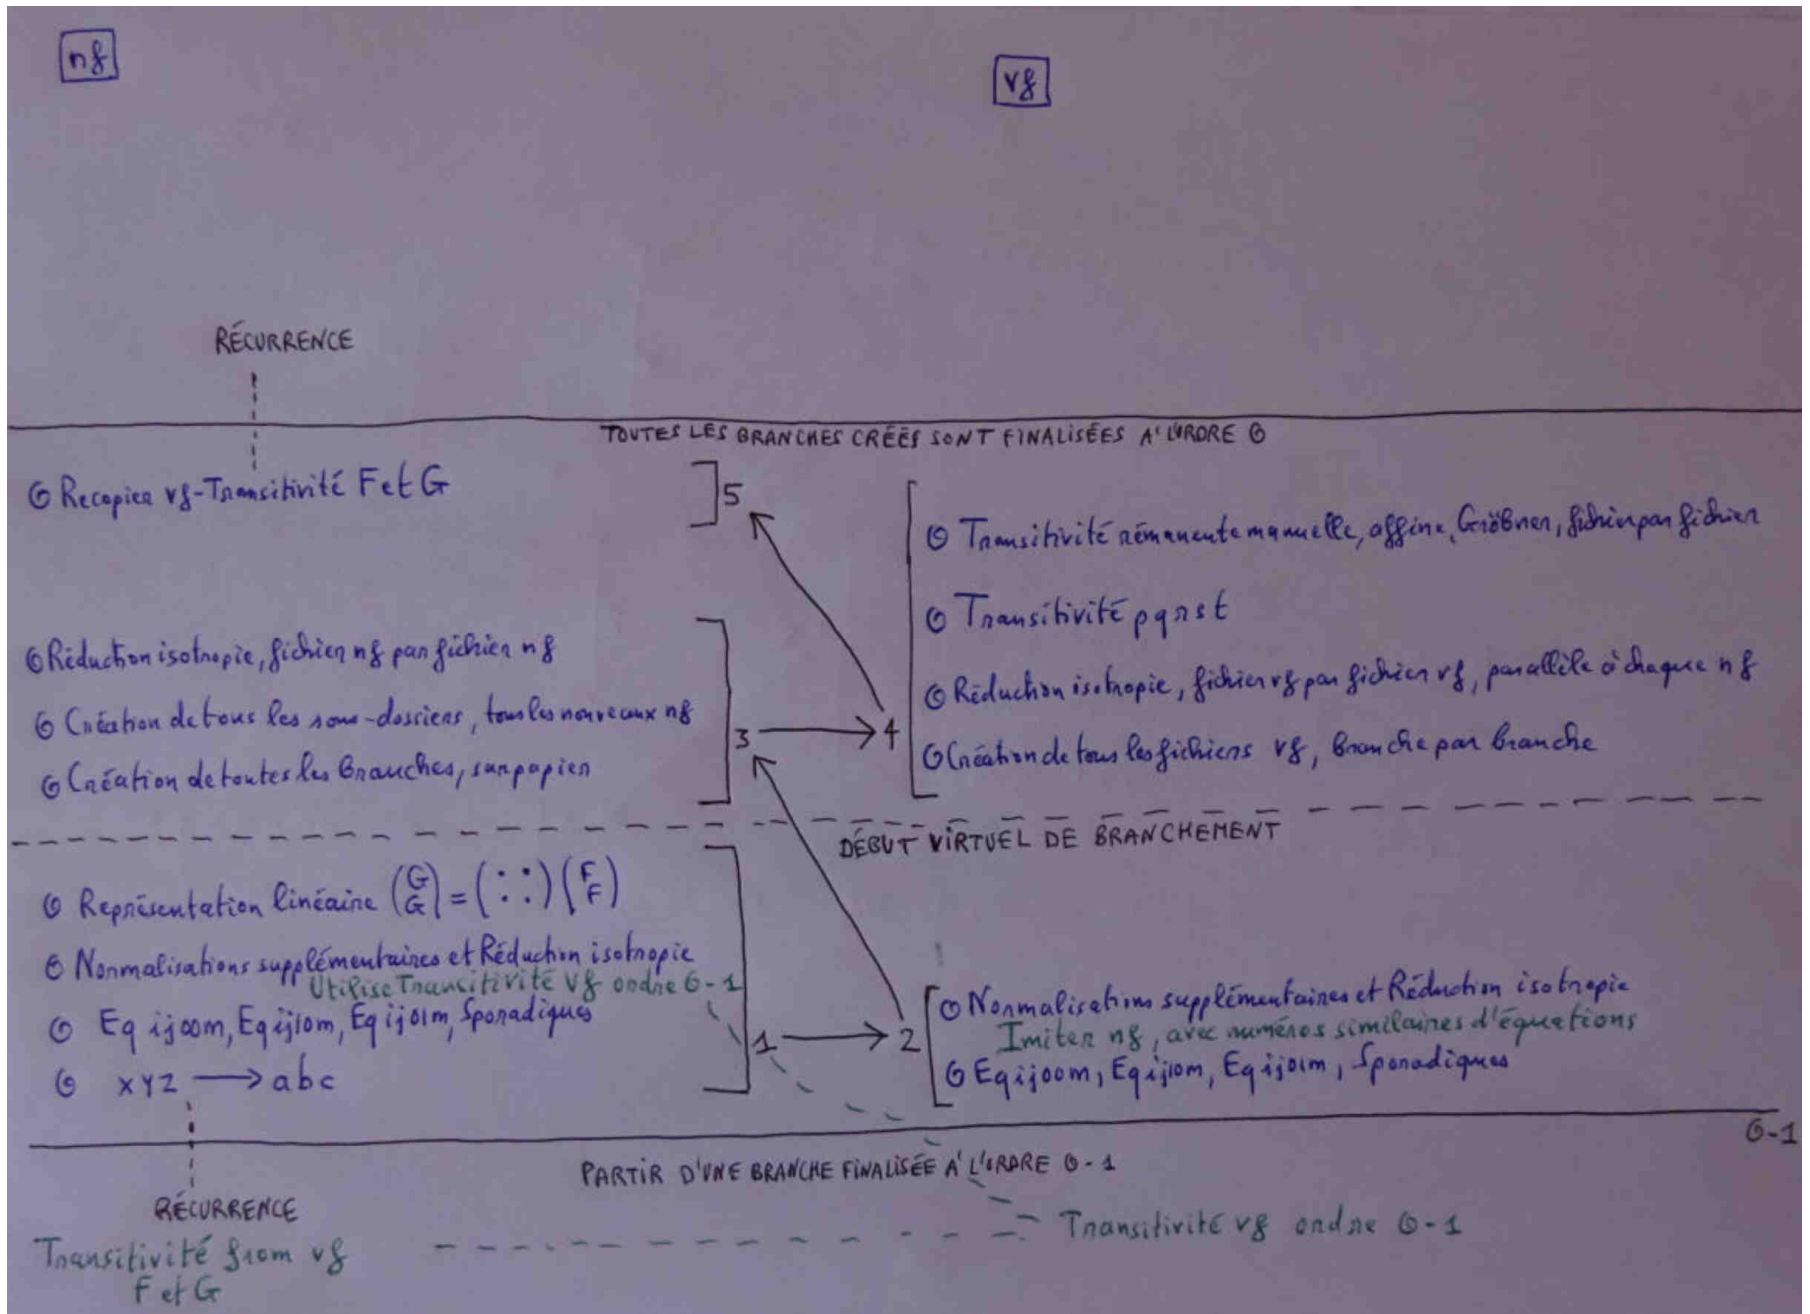 nf
vf
RÉCURRENCE
TOUTES LES BRANCHES CRÉÉS SONT FINALISÉES À L'ORDRE O
O Recopier vf-Transitivité F et G
]5
O Transitivité rémanente manuelle, affine, Gröbner, fichier par fichier
O Transitivité pqrst
O Réduction isotropie, fichier nf par fichier nf
O Réduction isotropie, fichier vf par fichier vf, parallèle à chaque nf
O Création de tous les sous-dossiers, tous les nouveaux nf
3 → 4
O Création de tous les fichiers vf, branche par branche
O Création de toutes les Branches, sur papier
DÉBUT VIRTUEL DE BRANCHEMENT
O Représentation linéaire (G G) = (: :) (F F)
O Normalisations supplémentaires et Réduction isotropie
Utilise Transitivité vf ordre O-1
O Eq ijoom, Eq ij1om, Eq ijo1m, Sporadiques
O xyz → abc
1 → 2
O Normalisations supplémentaires et Réduction isotropie
Imiter nf, avec numéros similaires d'équations
O Eq ijoom, Eq ij1om, Eq ijo1m, Sporadiques
O-1
PARTIR D'UNE BRANCHE FINALISÉE À L'ORDRE O-1
RÉCURRENCE
Transitivité from vf
F et G
Transitivité vf ordre O-1